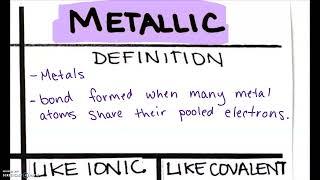 METALLIC
DEFINITION
- Metals
- bond formed when many metal
atoms share their pooled electrons.
LIKE IONIC LIKE COVALENT